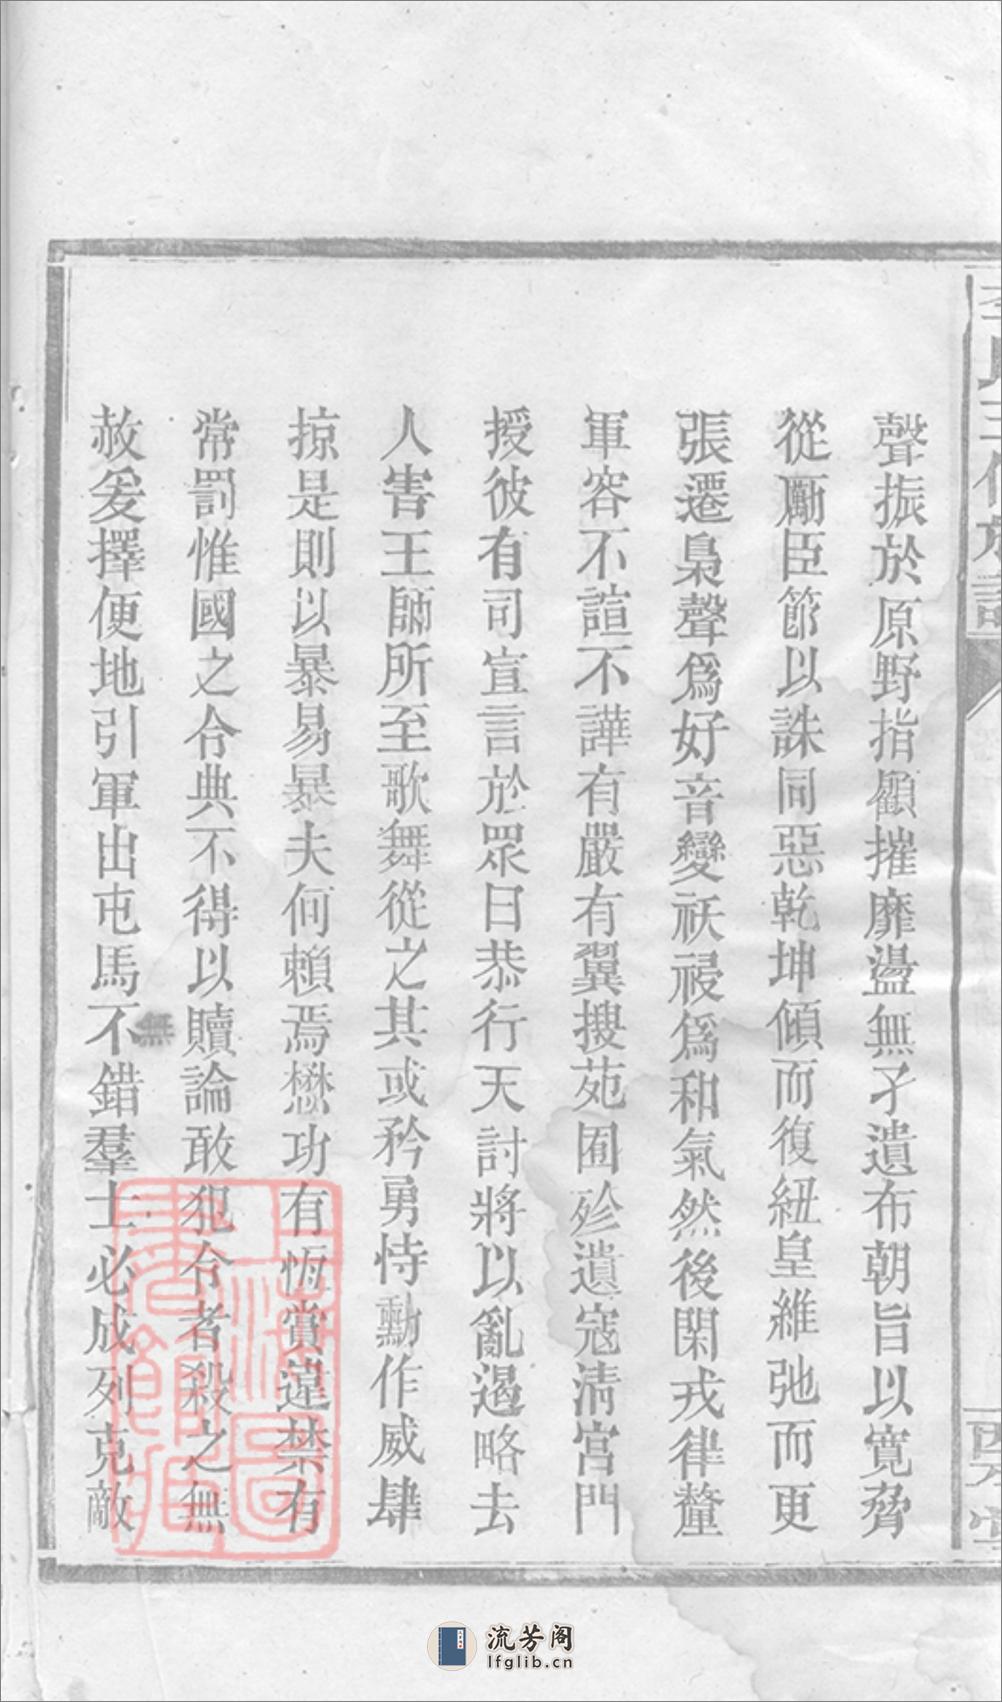 聲振於原野指顧摧靡盪無孑遺布朝旨以寬脅
從勵臣節以誅同惡乾坤傾而復紐皇維弛而更
張遷梟聲爲好音變祅祲爲和氣然後閑戎律釐
軍容不諠不譁有嚴有翼搜苑囿殄遺寇清宮門
授彼有司宣言於眾曰恭行天討將以亂遏略去
人害王師所至歌舞從之其或矜勇恃勳作威肆
掠是則以暴易暴夫何賴焉懋功有恆賞違禁有
常罰惟國之令典不得以贖論敢犯令者殺之無
赦爰擇便地引軍出屯馬不錯羣士必成列克敵
無
上海圖書館藏
流芳阁
lfglib.cn